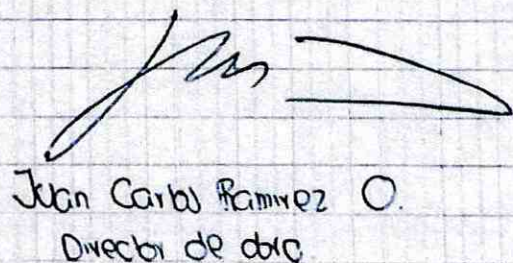 Juan Carlos Ramirez O.
Director de obra